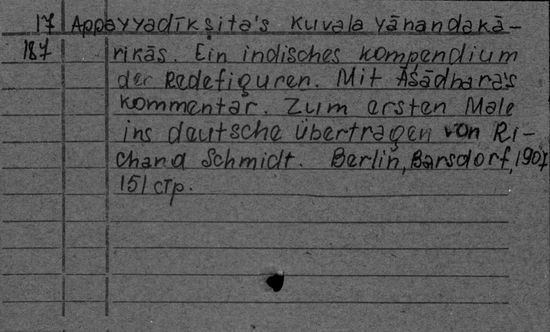 17 Appayyadīkṣita's Kuvala yānandakā-
187 rikās. Ein indisches Kompendium
der Redefiguren. Mit Āśādhara's
Kommentar. Zum ersten Male
ins deutsche übertragen von Ri-
chand Schmidt. Berlin, Barsdorf, 1907
151 стр.